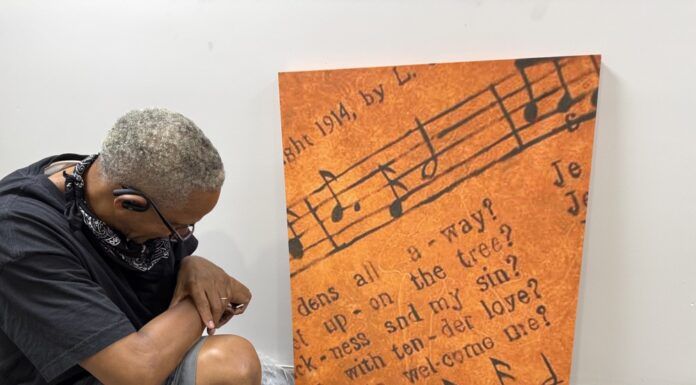 ght 1914, by L.
S
Je
Je
dens all a-way?
up-on the tree?
ck-ness snd my sin?
with ten-der love?
wel-come me?